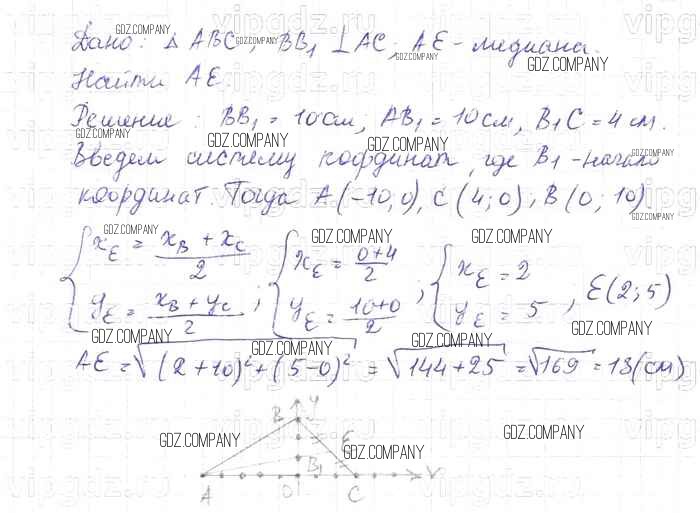 Дано: Δ ABC, BB₁ ⊥ AC, AE - медиана.
Найти AE.
Решение: BB₁ = 10 см, AB₁ = 10 см, B₁C = 4 см.
Введем систему координат, где B₁ - начало
координат. Тогда A(-10,0), C(4;0), B(0; 10)
{ x_E = (x_B + x_C)/2 ; { x_E = (0+4)/2 ; { x_E = 2
{ y_E = (x_B + y_C)/2 ; { y_E = (10+0)/2 ; { y_E = 5 , E(2;5)
AE = √((2+10)² + (5-0)²) = √(144+25) = √169 = 13(см)
B y
E
B₁
A O C x
GDZ.COMPANY
vipgdz.ru